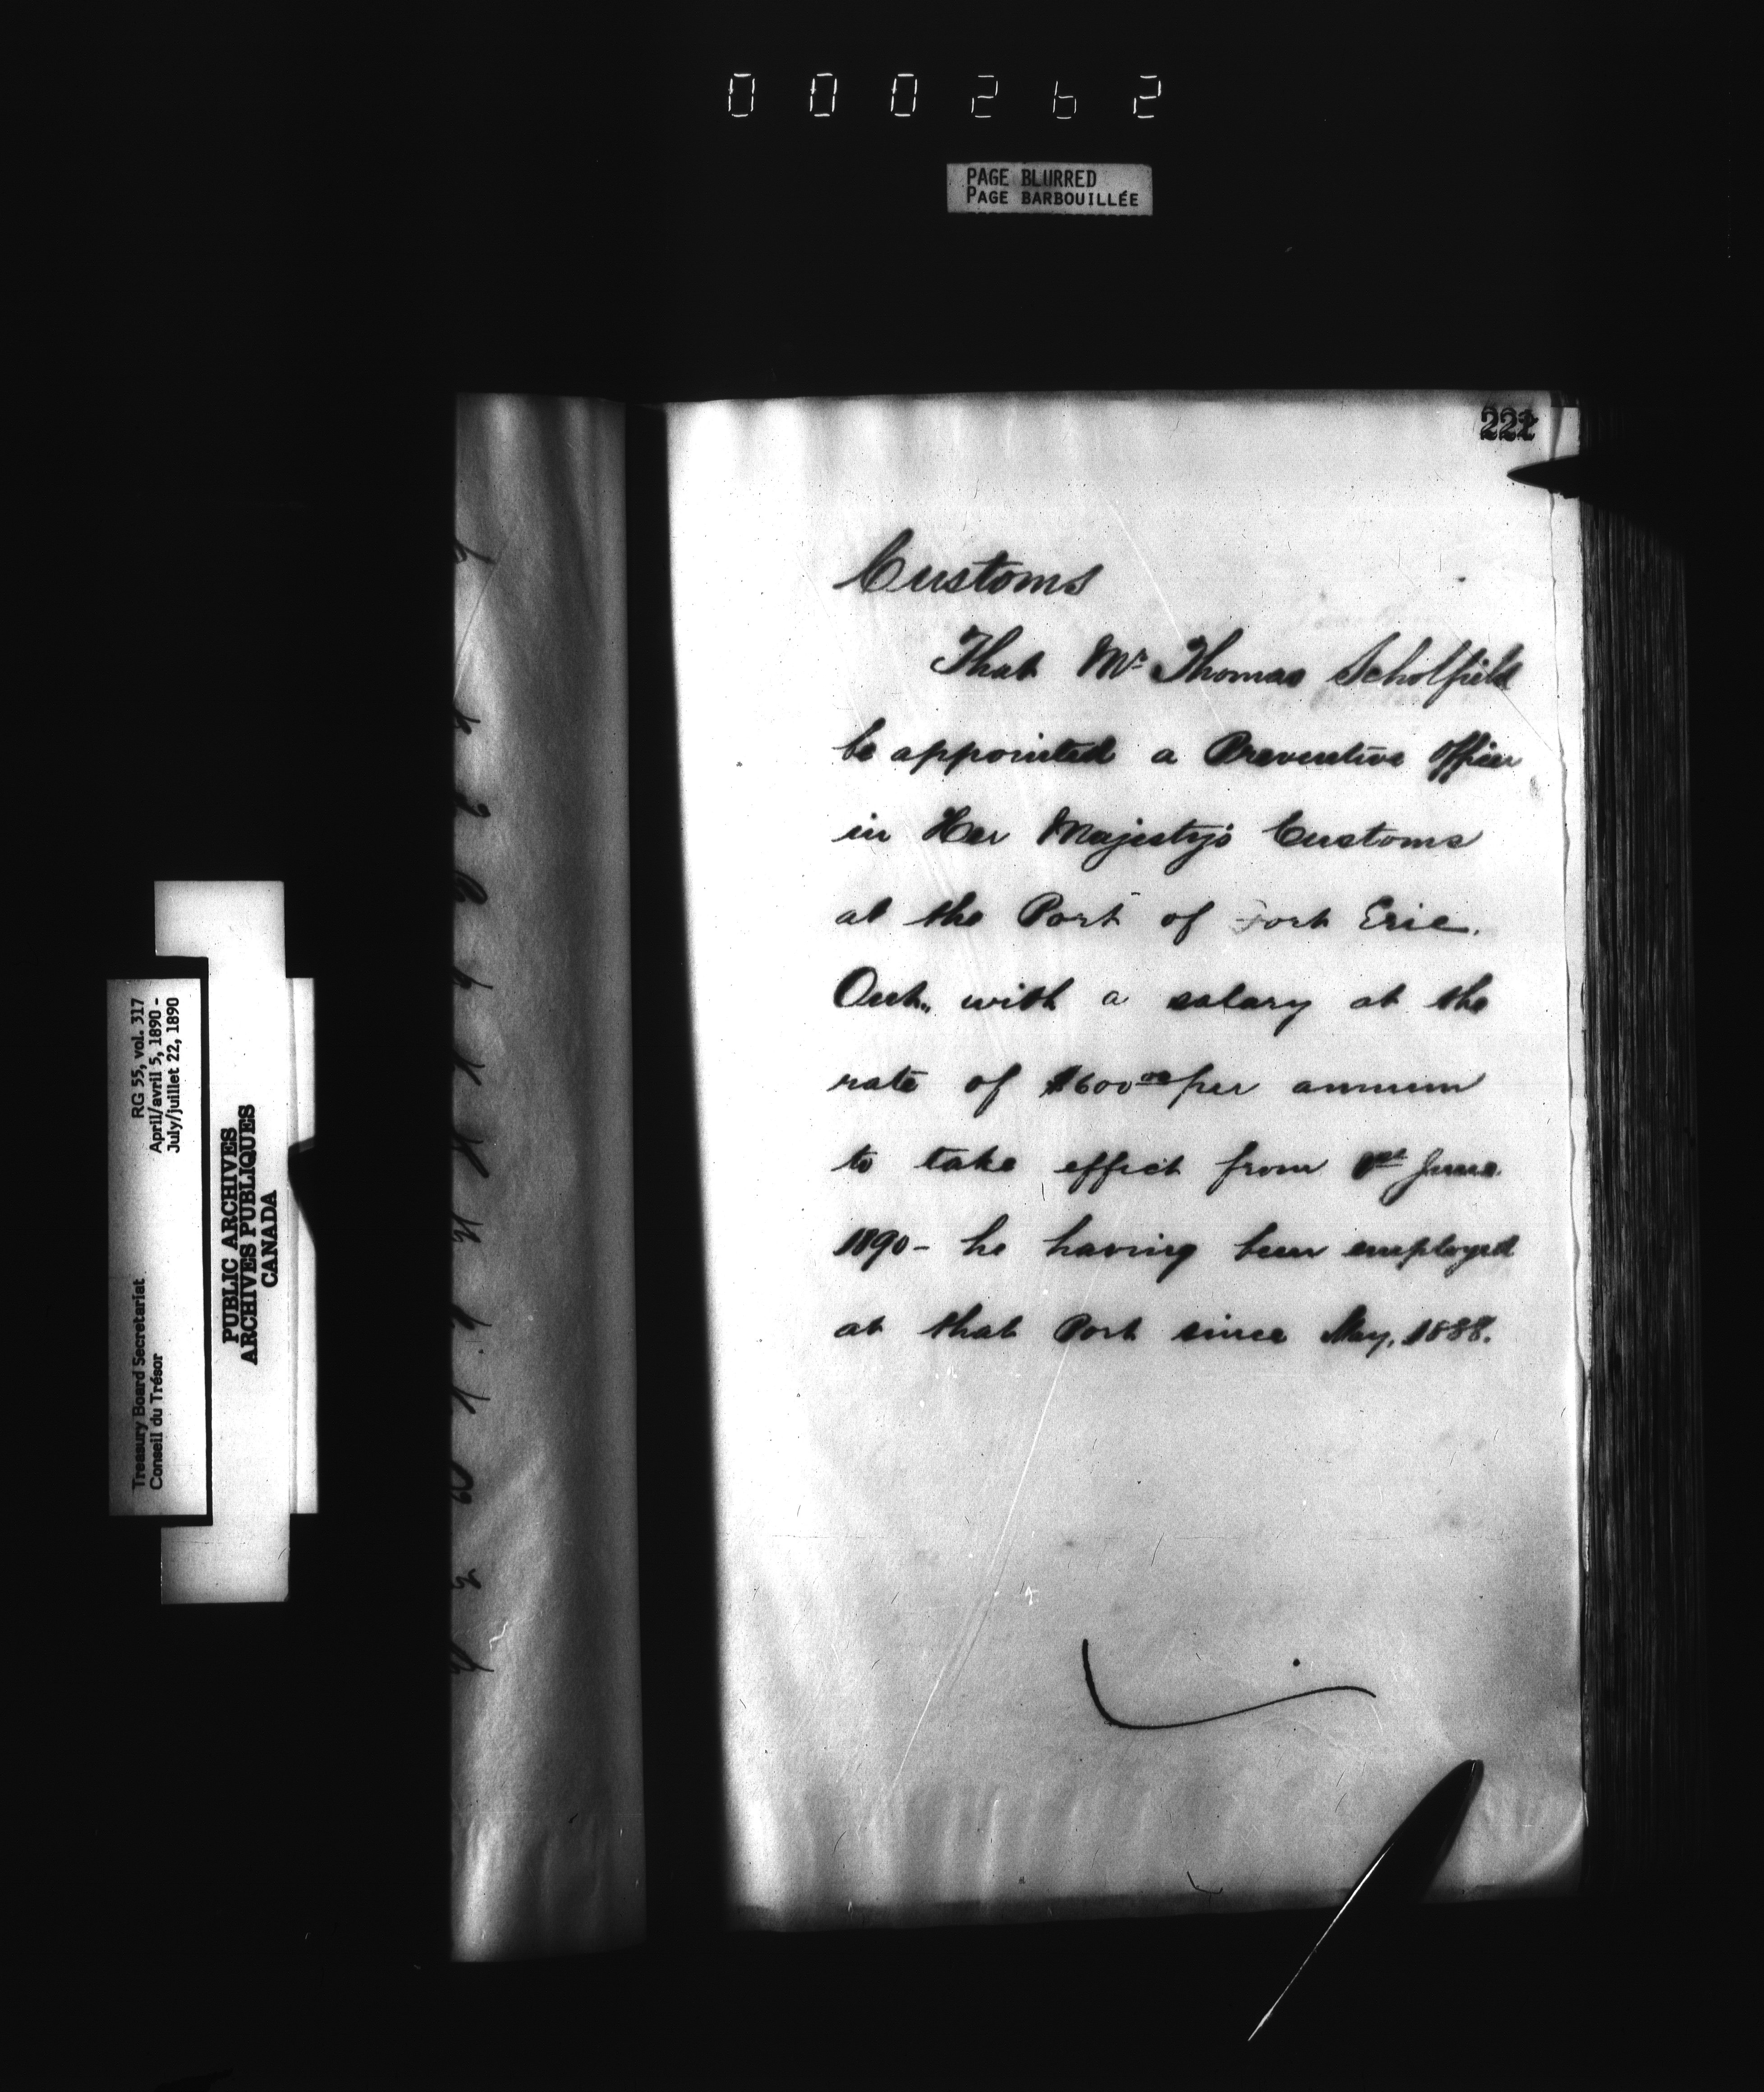 000262
PAGE BLURRED
PAGE BARBOUILLÉE
Customs
That Mr Thomas Scholfield
be appointed a Preventive Officer
in Her Majesty's Customs
at the Port of Fort Erie.
Ont., with a salary at the
rate of $600.00 per annum
to take effect from 1st June
1890 - he having been employed
at that Port since May, 1888.
RG 55, vol. 317
April/avril 5, 1890 -
July/juillet 22, 1890
Treasury Board Secretariat
Conseil du Trésor
PUBLIC ARCHIVES
ARCHIVES PUBLIQUES
CANADA